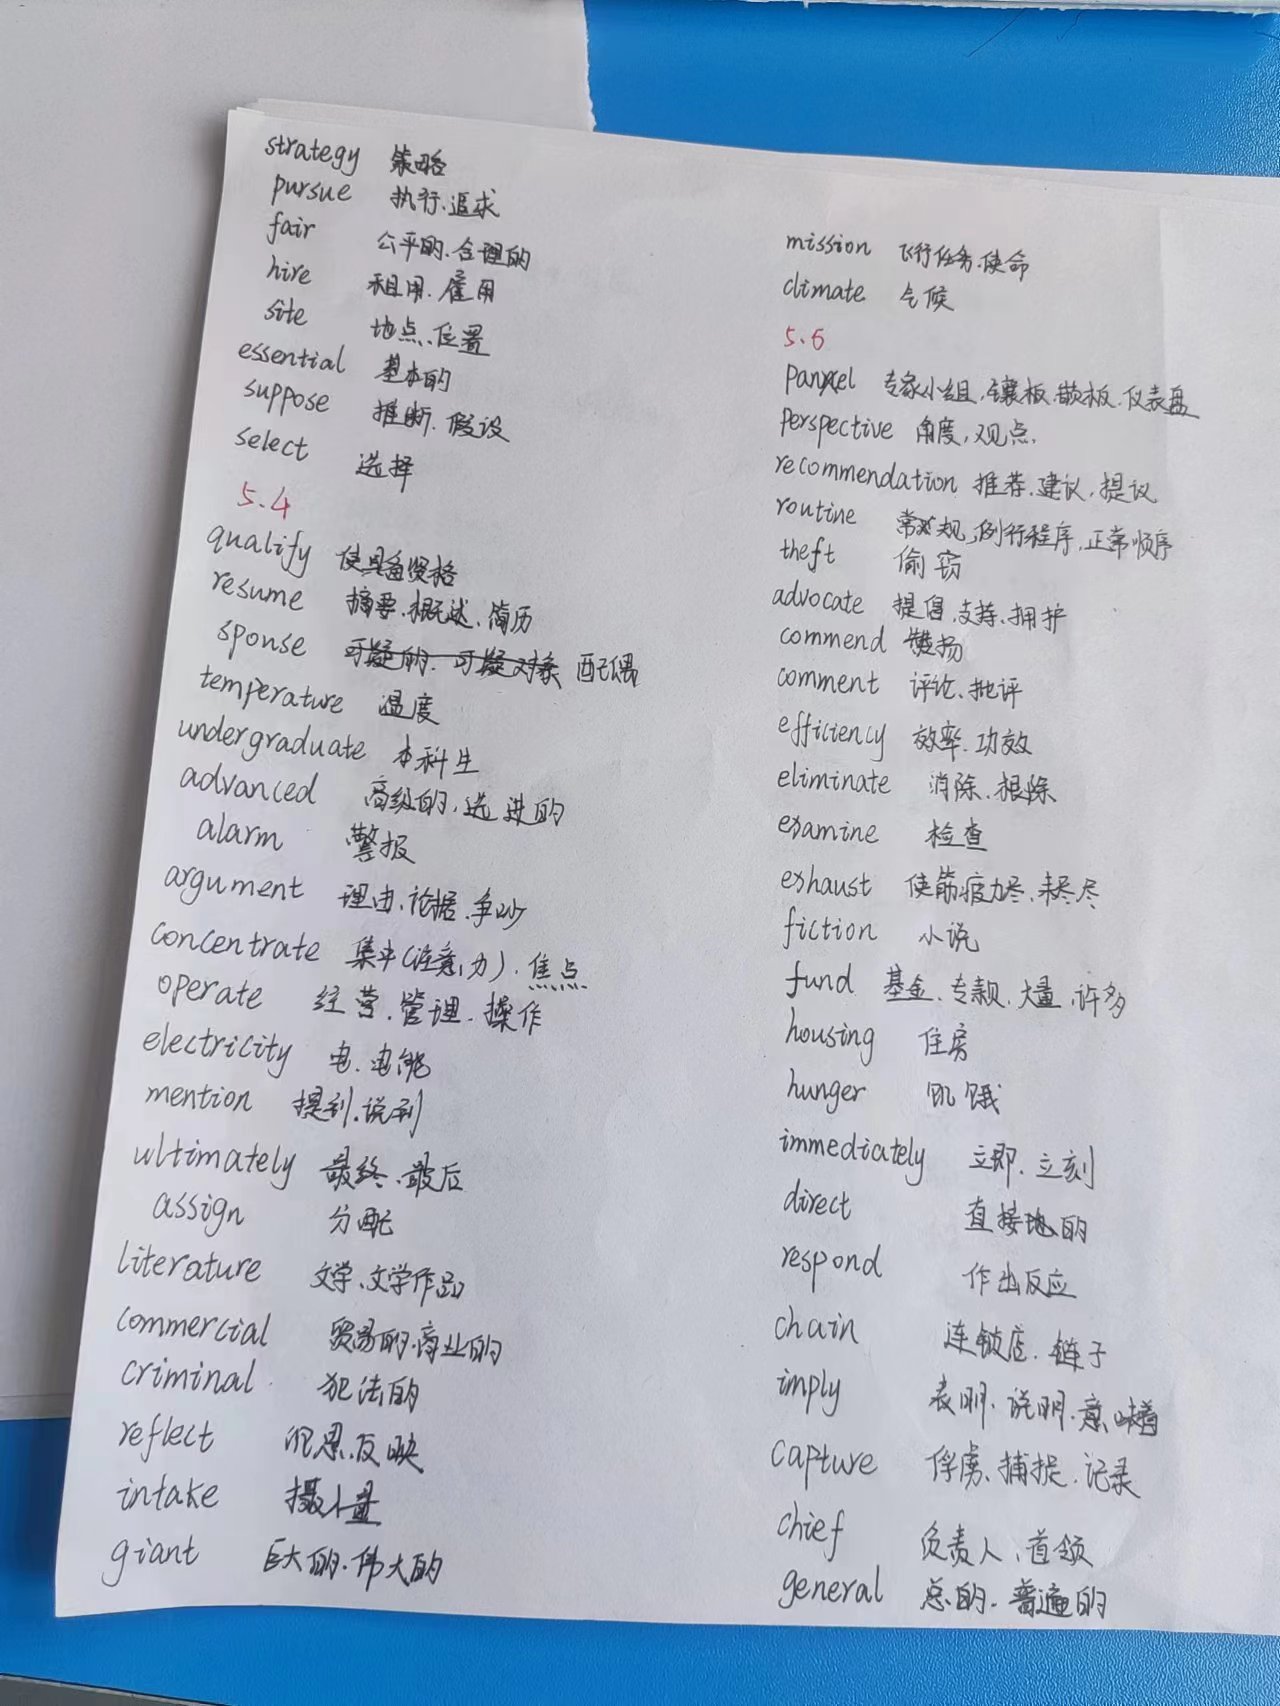 strategy 策略
pursue 执行、追求
fair 公平的、合理的
hire 租用、雇用
site 地点、位置
essential 基本的
suppose 推断、假设
select 选择
5.4
qualify 使具备资格
resume 摘要、概述、简历
sponse 可疑的、可疑对象 配偶
temperature 温度
undergraduate 本科生
advanced 高级的，先进的
alarm 警报
argument 理由、论据、争吵
concentrate 集中(注意力)、焦点
operate 经营、管理、操作
electricity 电、电能
mention 提到、说到
ultimately 最终、最后
assign 分配
literature 文学、文学作品
commercial 贸易的、商业的
criminal 犯法的
reflect 沉思、反映
intake 摄入量
giant 巨大的、伟大的
mission 飞行任务、使命
climate 气候
5.5
panel 专家小组，镶板、嵌板、仪表盘
perspective 角度，观点、
recommendation 推荐、建议，提议
routine 常规，例行程序，正常顺序
theft 偷窃
advocate 提倡、支持、拥护
commend 赞扬
comment 评论、批评
efficiency 效率、功效
eliminate 消除、根除
examine 检查
exhaust 使筋疲力尽、耗尽
fiction 小说
fund 基金、专款、大量，许多
housing 住房
hunger 饥饿
immediately 立即、立刻
direct 直接地的
respond 作出反应
chain 连锁店、链子
imply 表明、说明、意味着
capture 俘虏、捕捉、记录
chief 负责人、首领
general 总的、普遍的